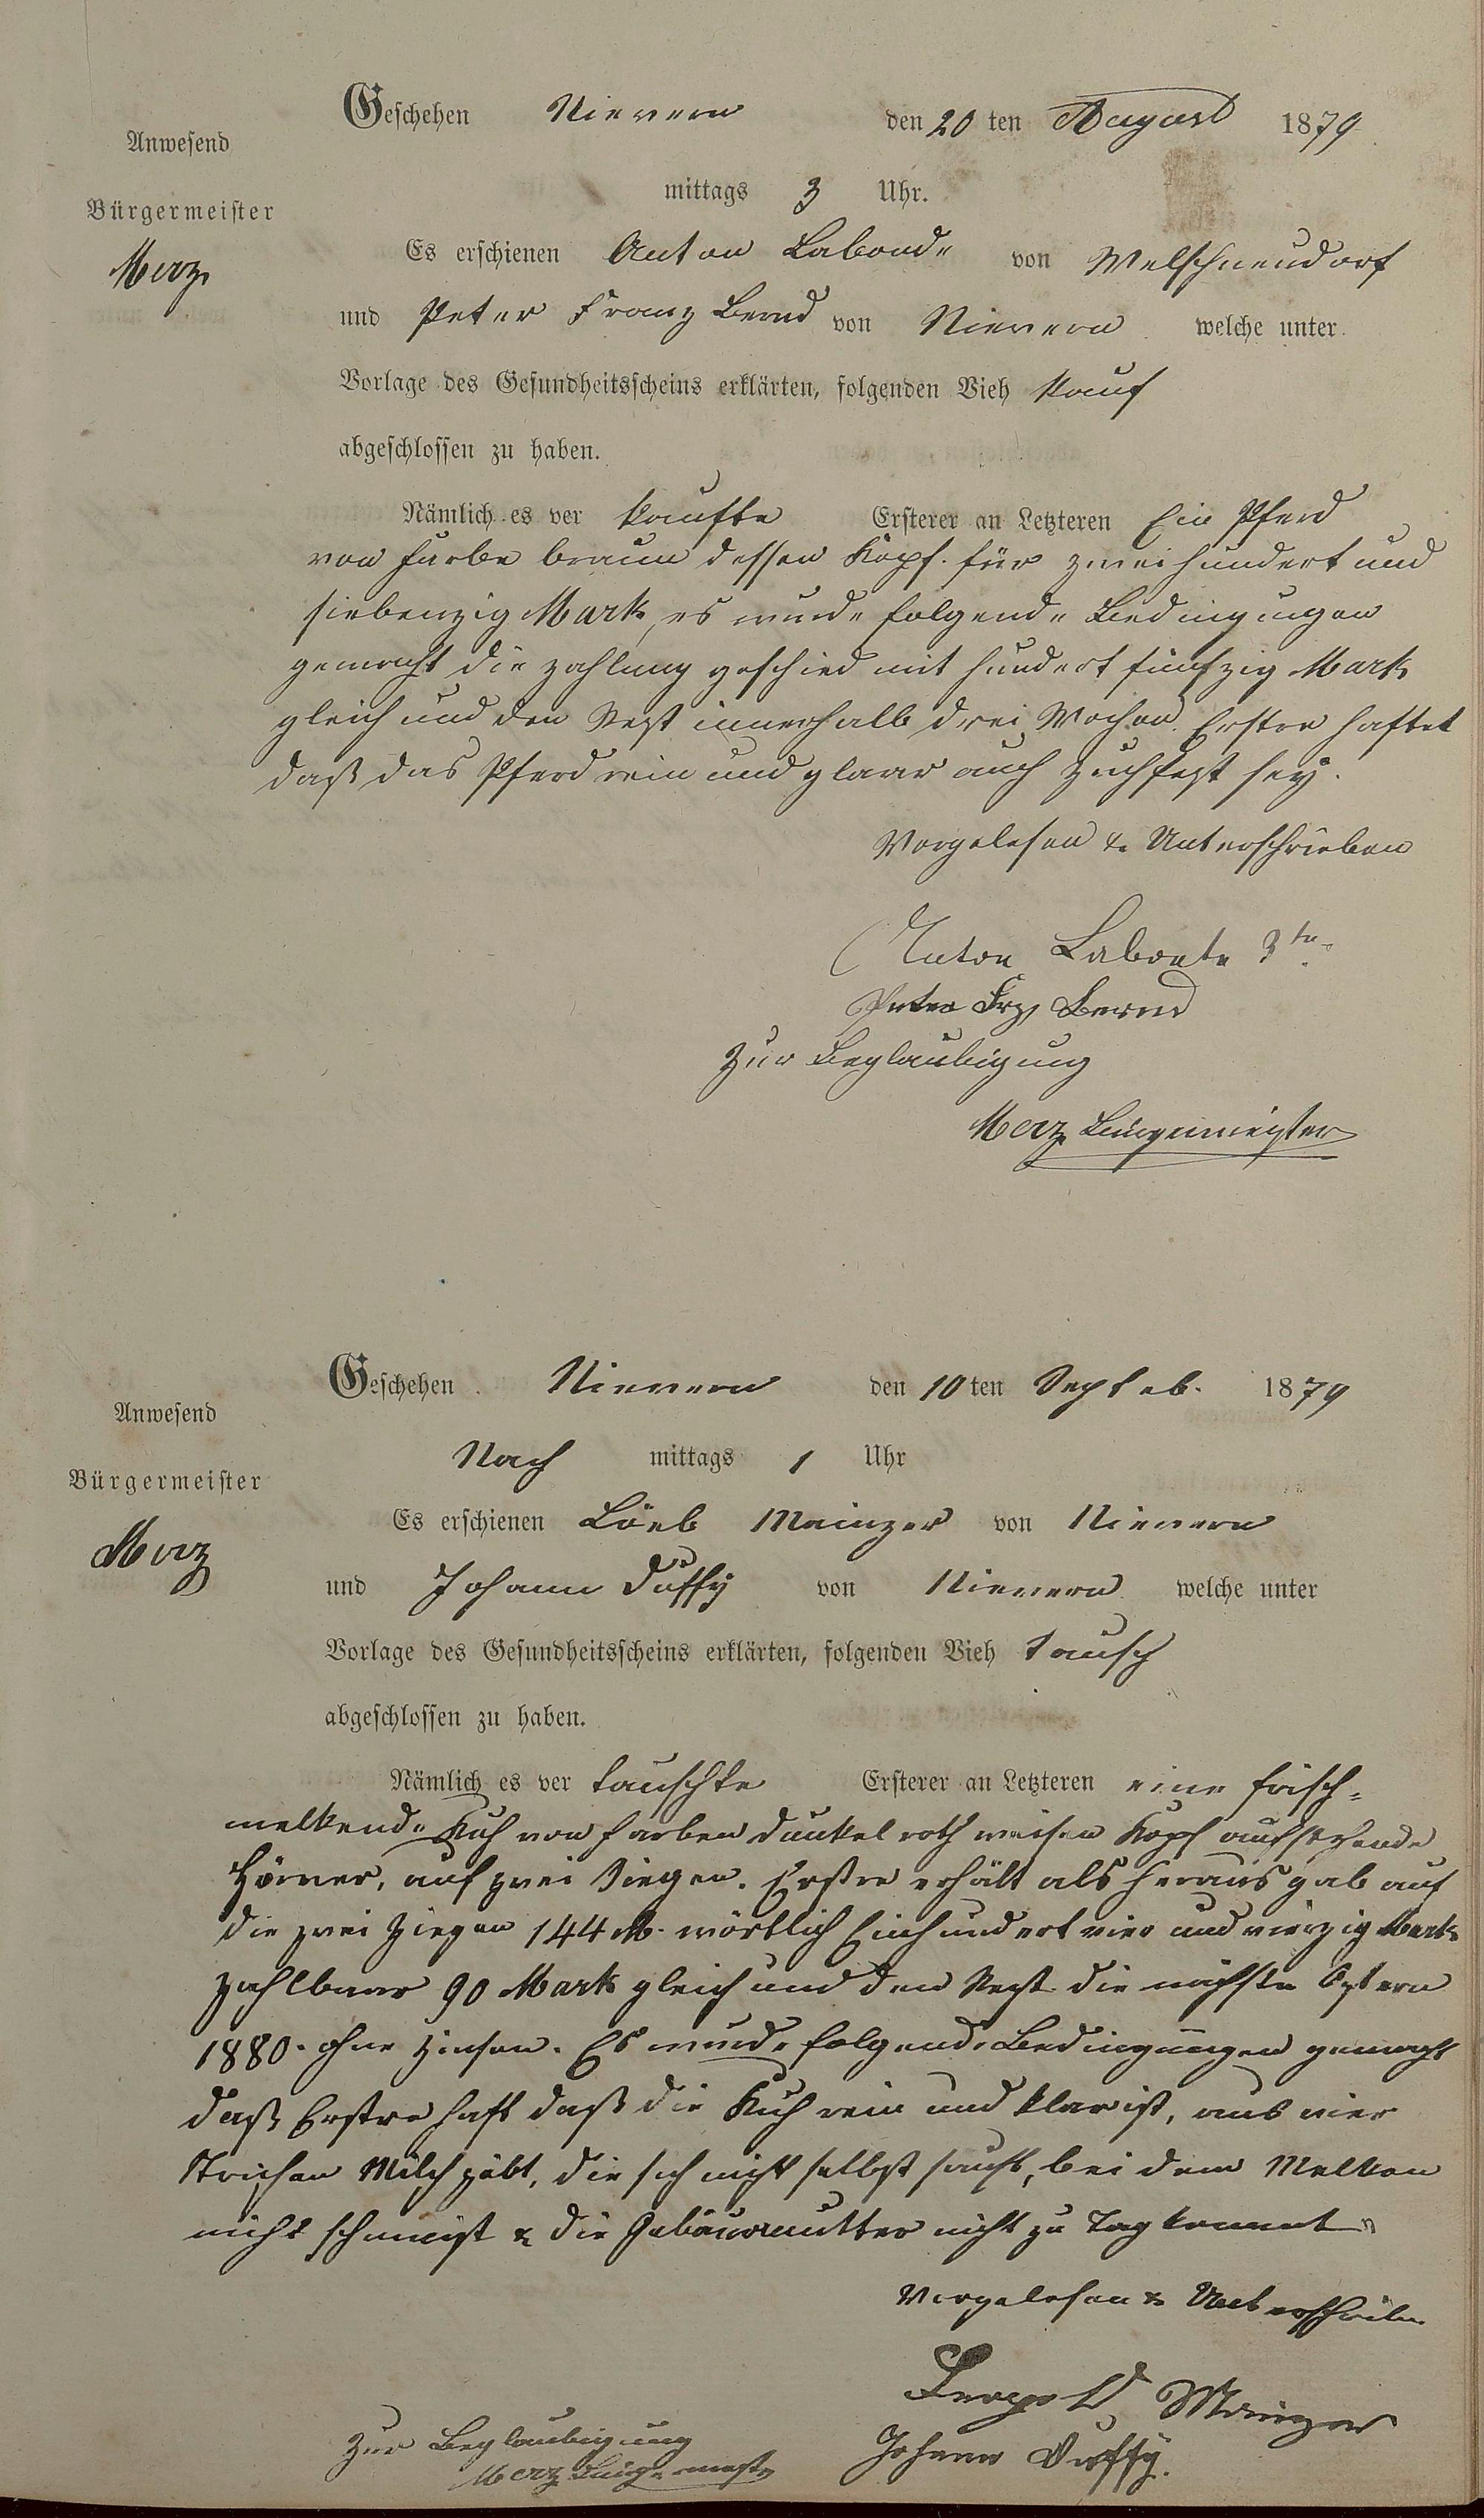 Geschehen Nievern den 20 ten August 1879
Anwesend
mittags 3 Uhr.
Bürgermeister
Merz
Es erschienen Anton Labonde von Welschneudorf
und Peter Franz Bernd von Nievern welche unter
Vorlage des Gesundheitsscheins erklärten, folgenden Vieh kauf
abgeschlossen zu haben.
Nämlich es ver kaufte Ersterer an Letzteren Ein Pferd
von farbe braun dessen Kopf. für zweihundert und
siebenzig Mark, es wurde folgende Bedingungen
gemacht die zahlung geschied mit hundert fünfzig Mark
gleich und den Rest innerhalb drei Wochen. Erstre haftet
daß das Pferd rein und glaar auch zuchfest sey.
Vorgelesen & Unterschrieben
Anton Labonte 3te
Peter Frz Bernd
Zur Beglaubigung
Merz Bürgermeister
Geschehen Nievern den 10 ten Septeb. 1879
Anwesend
Nach mittags 1 Uhr
Bürgermeister
Merz
Es erschienen Löeb Mainzer von Nievern
und Johann Duffy von Nievern welche unter
Vorlage des Gesundheitsscheins erklärten, folgenden Vieh tausch
abgeschlossen zu haben.
Nämlich es ver tauschte Ersterer an Letzteren eine frisch-
melkende Kuh von farben dunkel roth weisen Kopf aufstehende
Hörner, auf zwei Ziegen. Erstre erhält als herausgab auf
die zwei Ziegen 144 M. wörtlich Einhundert vier und vierzig Mark
zahlbaar 90 Mark gleich und den Rest die nächste Ostern
1880. ohne Zinsen. Es wurde folgende Bedingungen gemacht
daß Erstre haft daß die Kuh rein und klar ist, aus vier
Strichen Milch gibt, die sich nicht selbst sauft, bei dem Melken
nicht schmeist & die Gebäurmutter nicht zu Tag kommt
Vorgelesen & Unterschrieben
Leopold Mainzer
Zur Beglaubigung
Johann Duffy.
Merz Bürgermeister